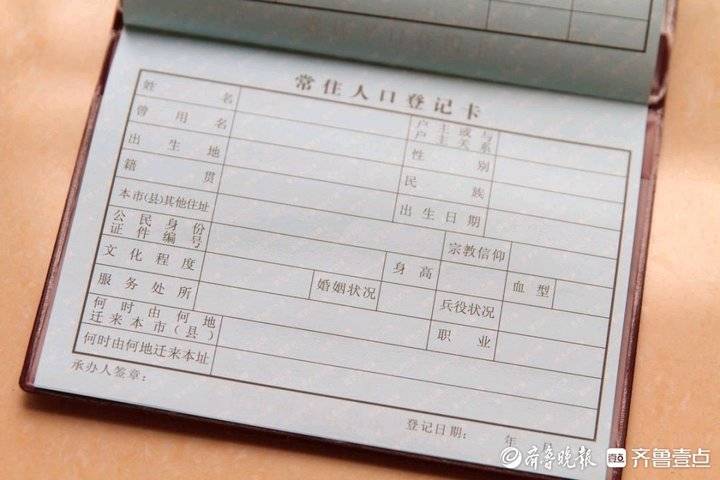 常住人口登记卡
姓名 户主或与户主关系
曾用名 性别
出生地 民族
籍贯 出生日期
本市(县)其他住址 宗教信仰
公民身份证件编号 身高 血型
文化程度 婚姻状况 兵役状况
服务处所 职业
何时由何地迁来本市(县)
何时由何地迁来本址
承办人签章：
登记日期： 年 月
齐鲁晚报 齐鲁壹点